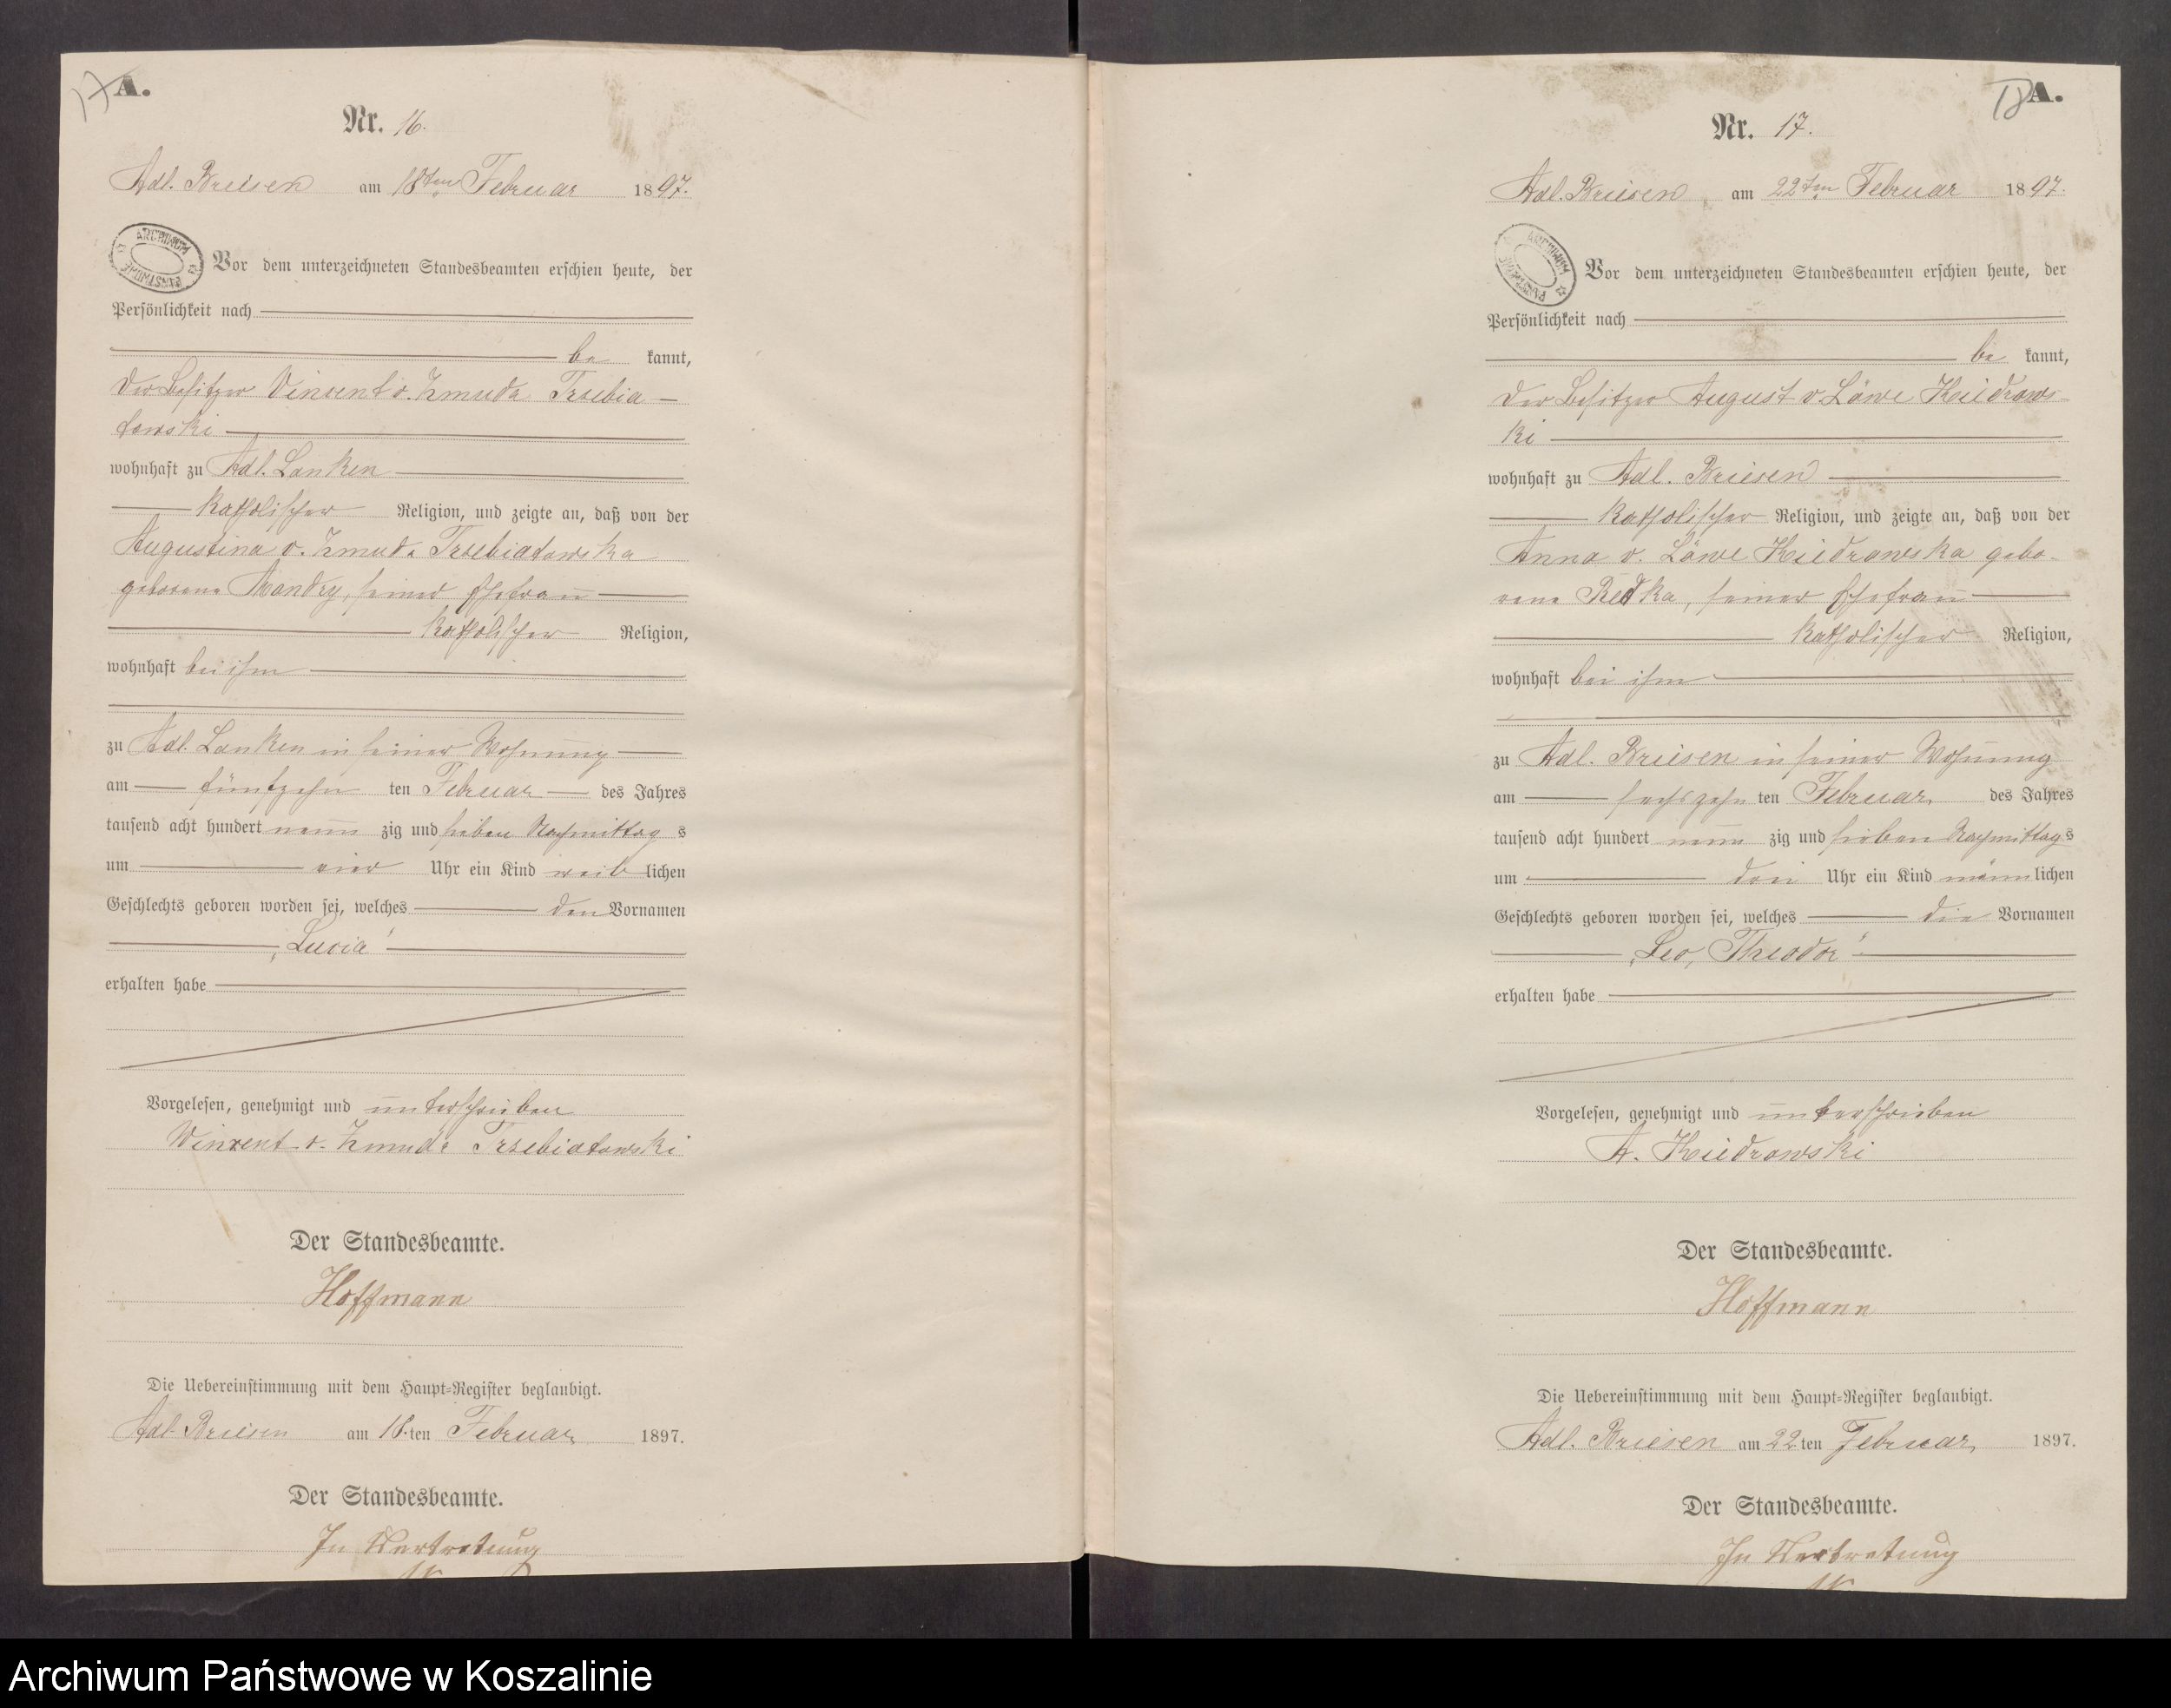 17
A.
Nr. 16.
Adl. Briesen am 18ten Februar 1897.
ARCHIWUM PAŃSTWOWE
Vor dem unterzeichneten Standesbeamten erschien heute, der
Persönlichkeit nach
be kannt,
der Besitzer Vincent v. Zmuda Trzebia-
towski
wohnhaft zu Adl. Lanken
katholischer Religion, und zeigte an, daß von der
Augustina v. Zmuda Trzebiatowska
geborene Mandry, seiner Ehefrau
katholischer Religion,
wohnhaft bei ihm
zu Adl. Lanken in seiner Wohnung
am fünfzehn ten Februar des Jahres
tausend acht hundert neun zig und sieben Nachmittag s
um vier Uhr ein Kind weib lichen
Geschlechts geboren worden sei, welches den Vornamen
„Lucia“
erhalten habe
Vorgelesen, genehmigt und unterschrieben
Vinzent v. Zmuda Trzebiatowski
Der Standesbeamte.
Hoffmann
Die Uebereinstimmung mit dem Haupt=Register beglaubigt.
Adl. Briesen am 18.ten Februar 1897.
Der Standesbeamte.
In Vertretung
18
A.
Nr. 17.
Adl. Briesen am 22ten Februar 1897.
ARCHIWUM PAŃSTWOWE
Vor dem unterzeichneten Standesbeamten erschien heute, der
Persönlichkeit nach
be kannt,
der Besitzer August v. Löwe Kiedrows-
ki
wohnhaft zu Adl. Briesen
katholischer Religion, und zeigte an, daß von der
Anna v. Löwe Kiedrowska gebo-
rene Redka, seiner Ehefrau
katholischer Religion,
wohnhaft bei ihm
zu Adl. Briesen in seiner Wohnung
am sechszehn ten Februar des Jahres
tausend acht hundert neun zig und sieben Nachmittag s
um drei Uhr ein Kind männ lichen
Geschlechts geboren worden sei, welches die Vornamen
„Leo, Theodor“
erhalten habe
Vorgelesen, genehmigt und unterschrieben
A. Kiedrowski
Der Standesbeamte.
Hoffmann
Die Uebereinstimmung mit dem Haupt=Register beglaubigt.
Adl. Briesen am 22.ten Februar 1897.
Der Standesbeamte.
In Vertretung
Archiwum Państwowe w Koszalinie